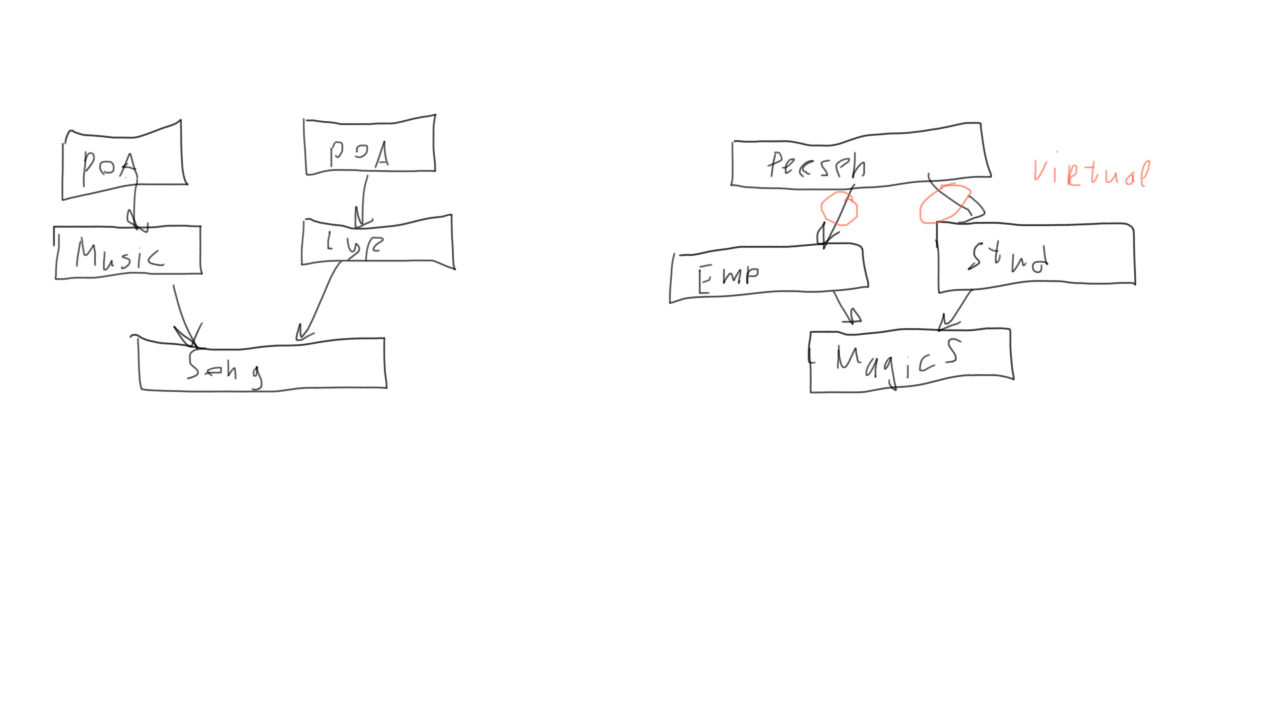 POA
POA
Music
Lyr
Song
Person
virtual
Emp
Stud
MagicS